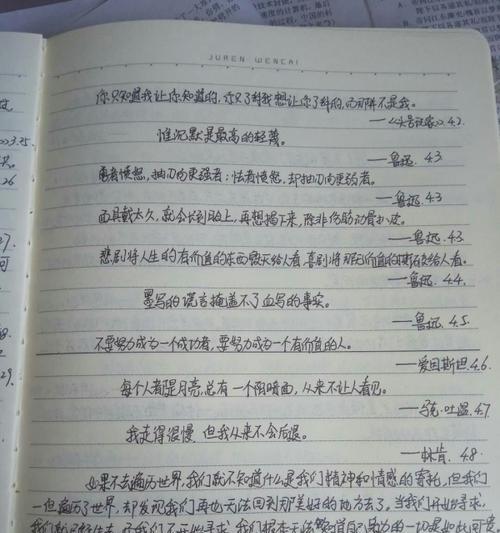 JUREN WENCAI
你只知道我让你知道的,你只了解我想让你了解的,而那不是我。
——《头号玩家》4.2.
惟沉默是最高的轻蔑。
——鲁迅.4.3
勇者愤怒,抽刃向更强者;怯者愤怒,却抽刃向更弱者。
——鲁迅.4.3
面具戴太久,就会长到脸上,再想揭下来,除非伤筋动骨扒皮。
——鲁迅.4.3
悲剧将人生的有价值的东西毁灭给人看,喜剧将那无价值的撕破给人看。
——鲁迅.4.4.
墨写的谎言掩盖不了血写的事实。
——鲁迅.4.5.
不要努力成为一个成功者,要努力成为一个有价值的人。
——爱因斯坦.4.6.
每个人都是月亮,总有一个阴暗面,从来不让人看见。
——马克·吐温.4.7.
我走得很慢,但我从来不会后退。
——林肯.4.8
如果不去遍历世界,我们就不知道什么是我们精神和情感的寄托,但我们
一旦遍历了世界,却发现我们再也无法回到那美好的地方去了。当我们开始寻求,